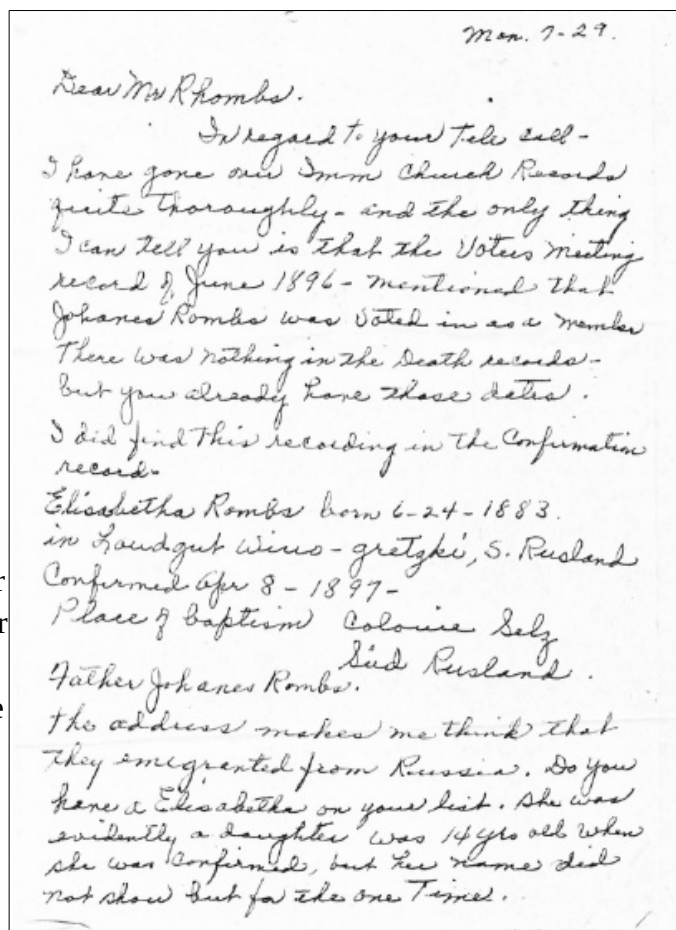 Mon. 7-29.
Dear Mr Rhombs.
In regard to your Tele call -
I have gone over Imm Church Records
quite thoroughly - and the only thing
I can tell you is that the Voters Meeting
record of June 1896 - mentioned that
Johanes Rombs was voted in as a member
There was nothing in the Death records -
but you already have those dates.
I did find this recording in the Confirmation
record -
Elisabetha Rombs born 6-24-1883.
in Landgut Wino-gretzki, S. Rusland
Confirmed Apr 8 - 1897 -
Place of baptism Colonie Selz
Süd Rusland.
Father Johanes Rombs.
the address makes me think that
they emigrated from Russia. Do you
have a Elisabetha on your list. She was
evidently a daughter was 14 yrs old when
she was confirmed, but her name did
not show but for the one Time.
r
r
e